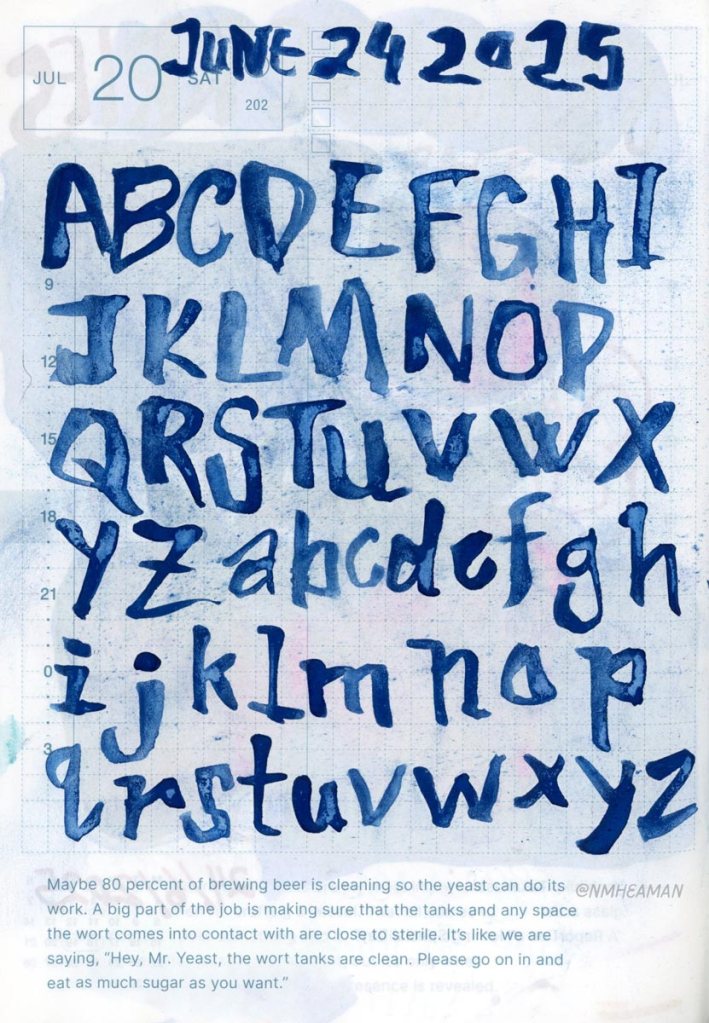 JUNE 24 2025
JUL 20 SAT
202
ABCDEFGHI
9
JKLMNOP
12
QRSTUVWX
15
YZabcdefgh
18
21
ijklmnop
0
3
qrstuvwxyz
Maybe 80 percent of brewing beer is cleaning so the yeast can do its
@NMHEAMAN
work. A big part of the job is making sure that the tanks and any space
the wort comes into contact with are close to sterile. It's like we are
saying, “Hey, Mr. Yeast, the wort tanks are clean. Please go on in and
eat as much sugar as you want.”